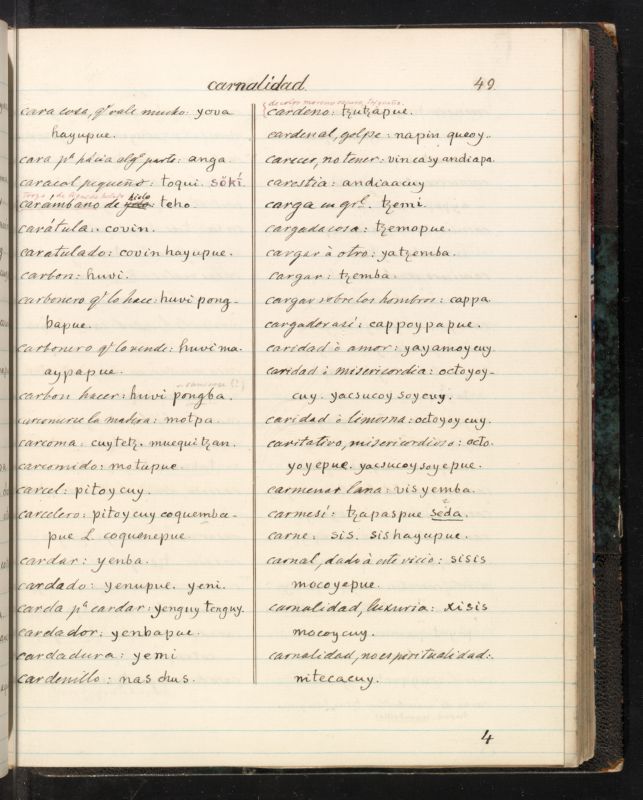 carnalidad 49
cara cosa, qe vale mucho: yova
hayupue.
cara pa hácia algª parte: anga.
caracol pequeño: toqui. sökí.
carámbano de yelo hielo: teho.
carátula: covin.
caratulado: covin hayupue.
carbon: huvi.
carbonero qe lo hace: huvi pong-
bapue.
carbonero qe lo vende: huvi ma-
aypapue.
carbon hacer: huvi pongba.
carcomerse la madera: motpa.
carcoma: cuytetz. muequitzan.
carcomido: motupue.
carcel: pitoycuy.
carcelero: pitoycuy coquemba-
pue l. coquenepue
cardar: yenba.
cardado: yenupue. yeni.
carda pa cardar: yenguy tenguy.
cardador: yenbapue.
cardadura: yemi
cardenillo: nas chus.
de color moreno oscuro, trigueño.
cardeno: tzutzapue.
cardenal, golpe: napin queoy.
carecer, no tener: vin casy andiapa.
carestia: andiaacuy
carga en grl. tzemi.
cargada cosa: tzemopue.
cargar à otro: yatzemba.
cargar: tzemba.
cargar sobre los hombros: cappa.
cargador asi: cappoypapue.
caridad ò amor: yayamoycuy.
caridad ò misericordia: octoyoy-
cuy. yacsucoy soycuy.
caridad ò limosna: octoyoycuy.
caritativo, misericordioso: octo-
yoyepue. yacsucoysoyepue.
carmenar lana: visyemba.
carmesí: tzapaspue seda.
carne: sis. sishayupue.
carnal, dado à este vicio: sisis
mocoyepue.
carnalidad, luxuria: xisis
mocoycuy.
carnalidad, no espiritualidad:
nitecacuy.
4